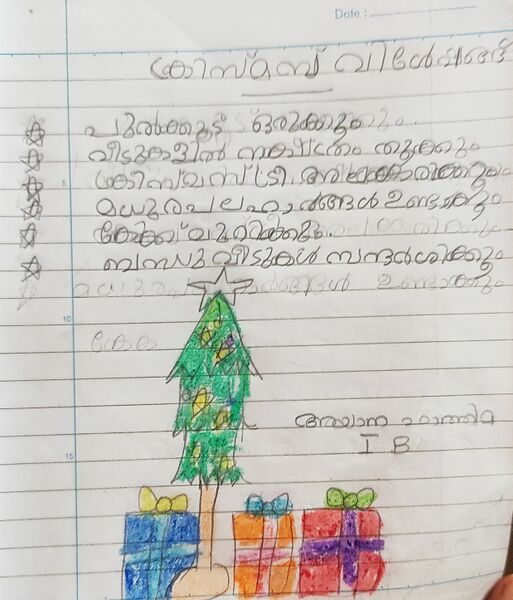 Date :
ക്രിസ്മസ് വിശേഷങ്ങൾ
പുൽക്കൂട് ഒരുക്കും
വീടുകളിൽ നക്ഷത്രം തൂക്കും
5
ക്രിസ്മസ് ട്രീ അലങ്കരിക്കും
മധുരപലഹാരങ്ങൾ ഉണ്ടാക്കും
കേക്ക് മുറിക്കും
ബന്ധുവീടുകൾ സന്ദർശിക്കും
മധുര ഹാരങ്ങൾ ഉണ്ടാക്കും
10
ഫാത്തിമ
I B
15